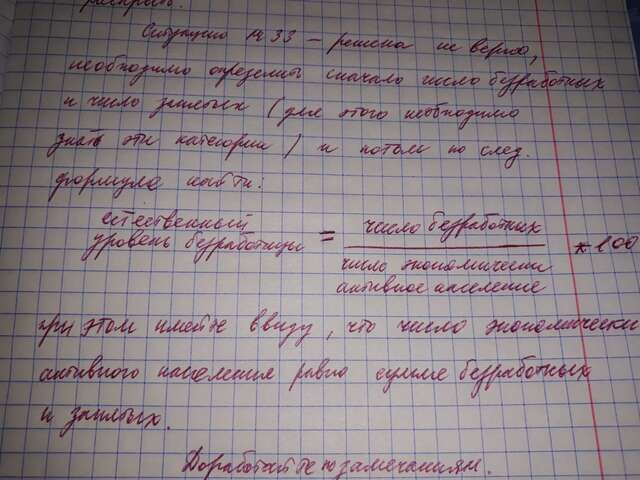 раскрыть.
Ситуация № 33 – решена не верно,
необходимо определить сначало число безработных
и число занятых (для этого необходимо
знать эти категории) и потом по след.
формуле найти:
естественный
уровень безработицы = число безработных / число экономически активное население * 100
при этом имейте ввиду, что число экономически
активного населения равно сумме безработных
и занятых.
Доработайте по замечаниям.